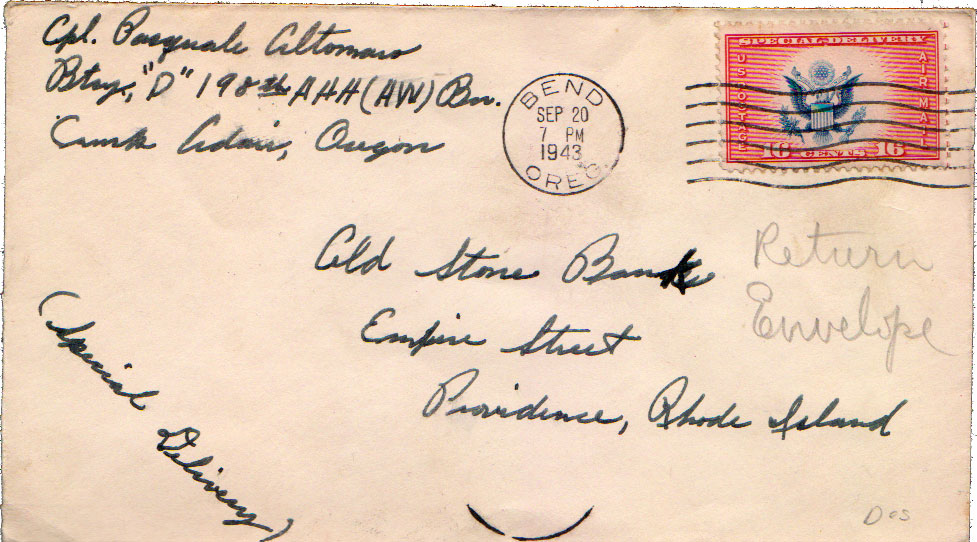 Cpl. Pasquale Altomaro
Btry, "D" 198th AAA (AW) Bn.
Camp Adair, Oregon
BEND
SEP 20
7 PM
1943
OREG.
SPECIAL DELIVERY
US POSTAGE
AIR MAIL
16 CENTS 16
Old Stone Bank
Empire Street
Providence, Rhode Island
Return
Envelope
(Special Delivery)